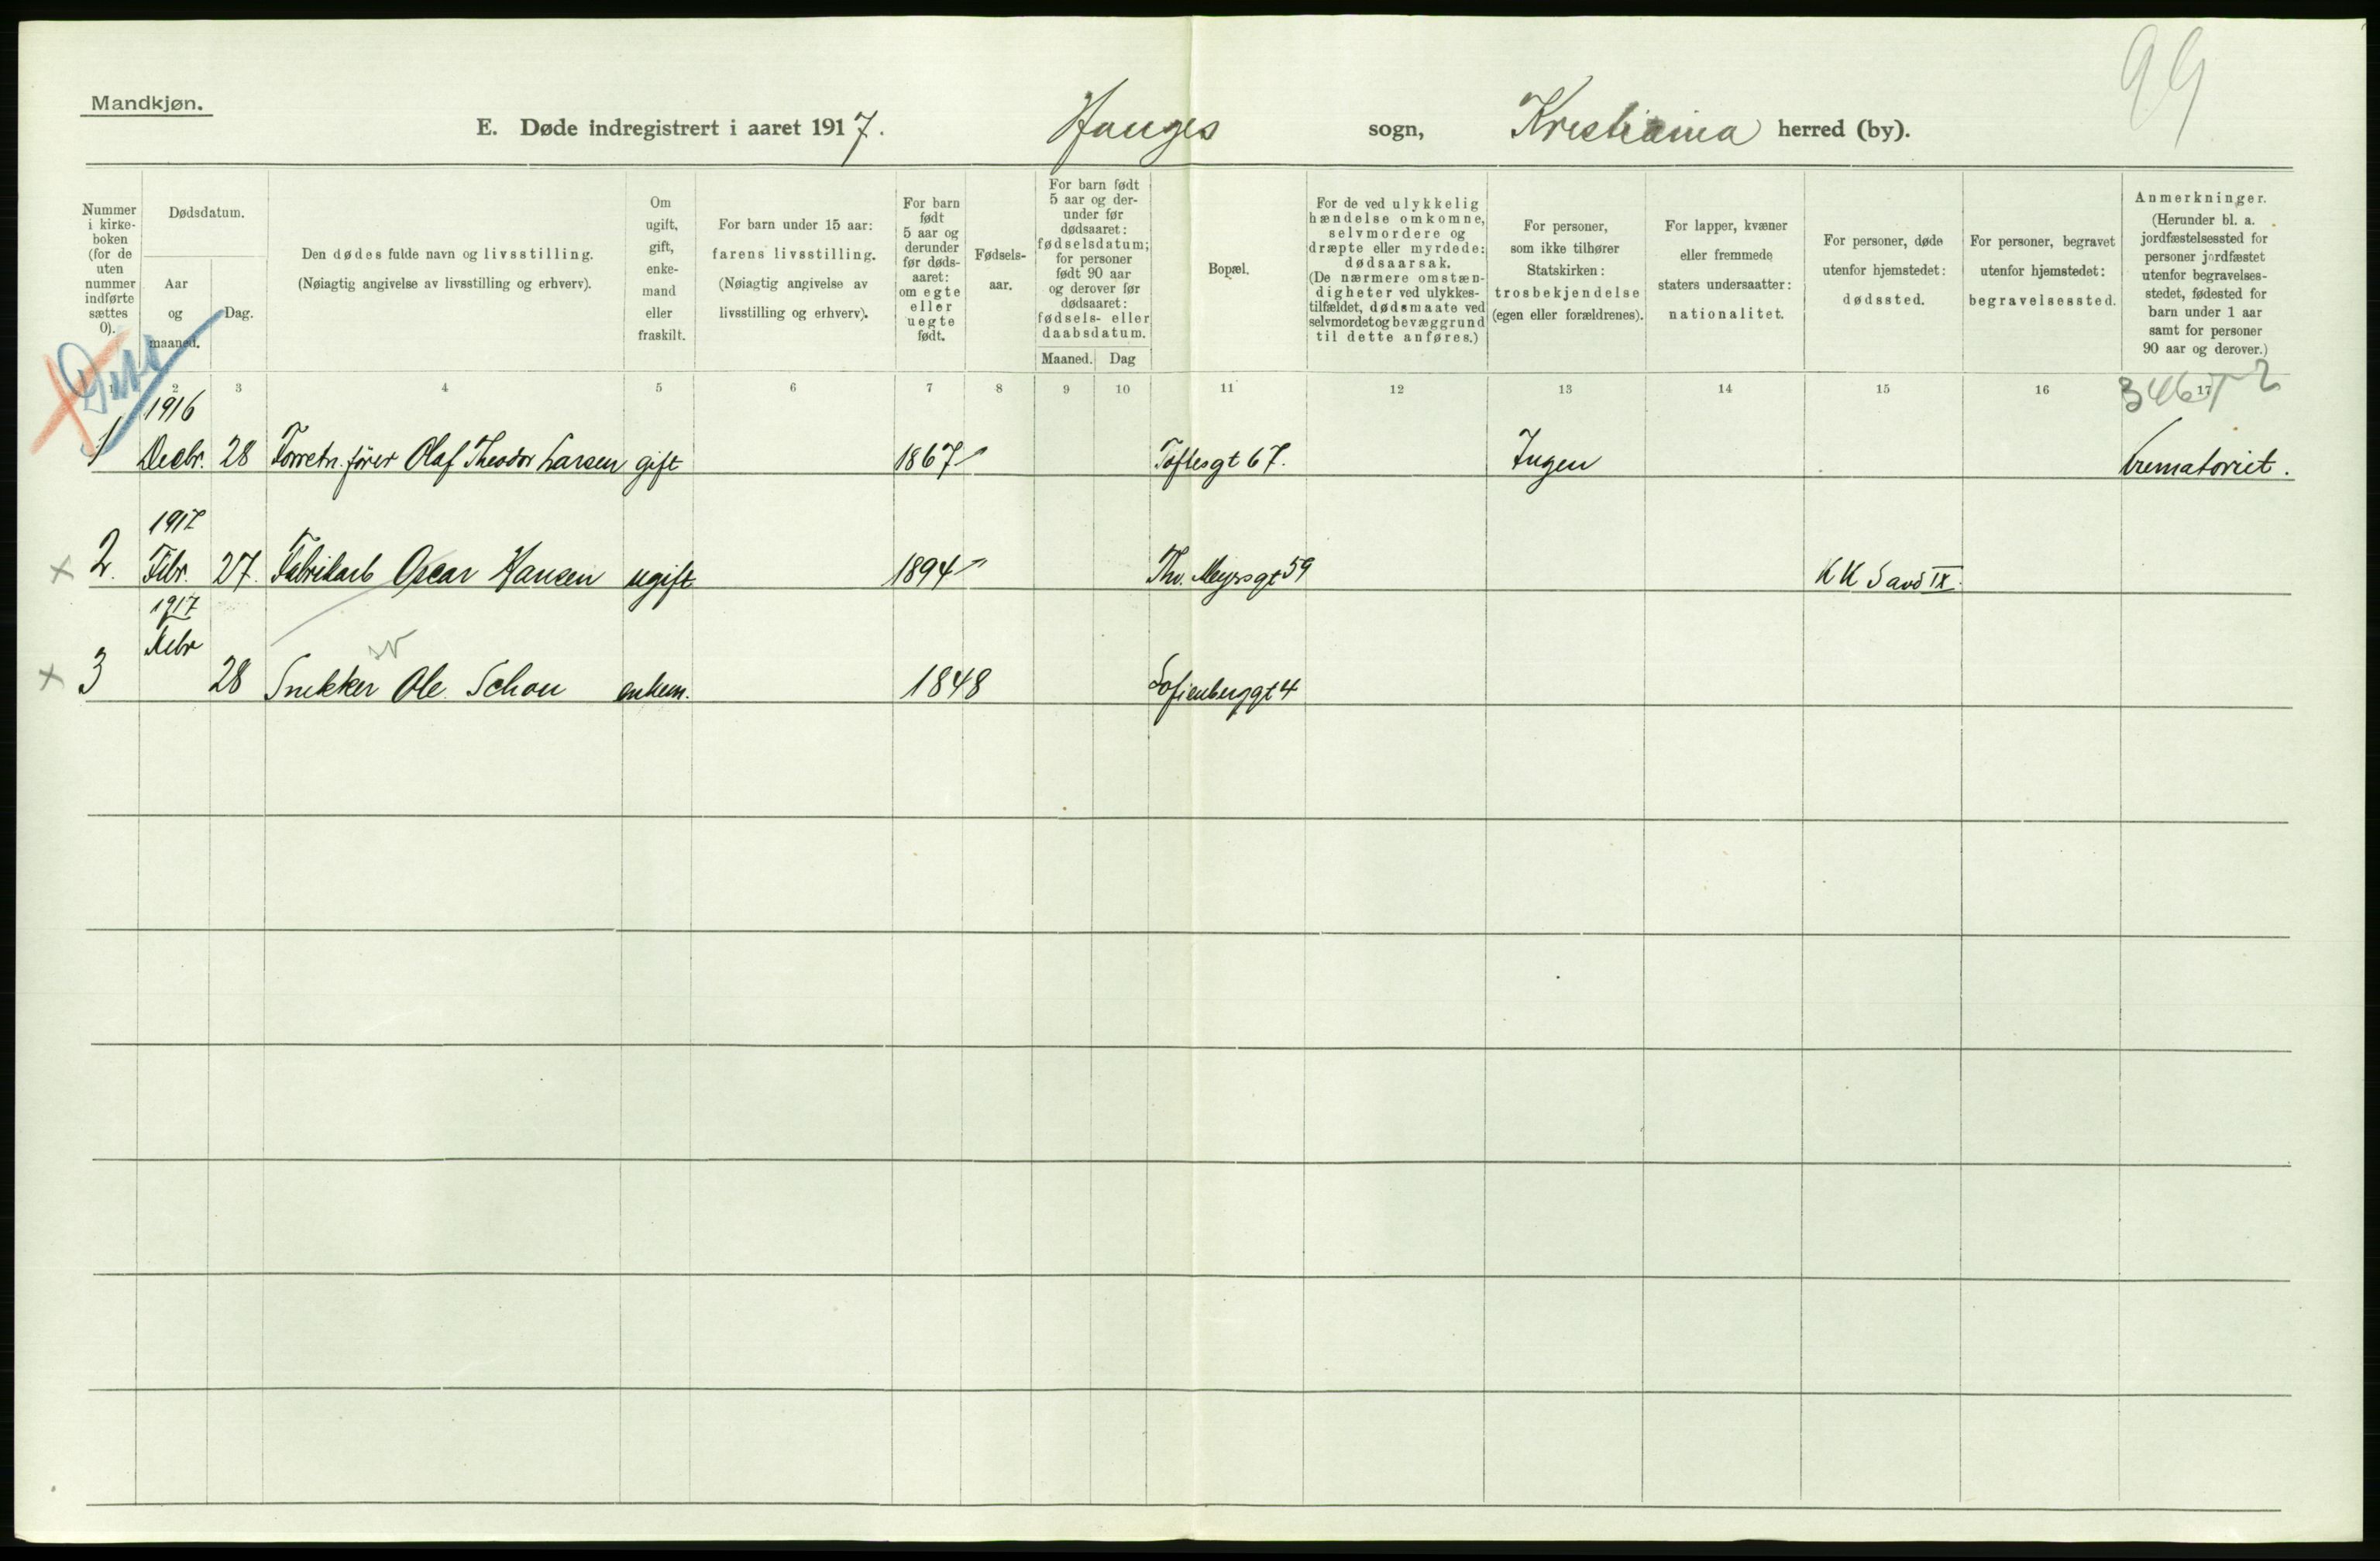 99
Mandkjøn.
E. Døde indregistrert i aaret 1917. Hauges sogn, Kristiania herred (by).
Nummer i kirke-boken (for de uten nummer indførte sættes 0).
Dødsdatum.
Aar og maaned.
Dag.
Den dødes fulde navn og livsstilling.
(Nøiagtig angivelse av livsstilling og erhverv).
Om ugift, gift, enke-mand eller fraskilt.
For barn under 15 aar: farens livsstilling.
(Nøiagtig angivelse av livsstilling og erhverv).
For barn født 5 aar og derunder før døds-aaret: om egte eller uegte født.
Fødsels-aar.
For barn født 5 aar og der-under før dødsaaret: fødselsdatum; for personer født 90 aar og derover før dødsaaret: fødsels- eller daabsdatum.
Maaned. Dag
Bopæl.
For de ved ulykkelig hændelse omkomne, selvmordere og dræpte eller myrdede: dødsaarsak.
(De nærmere omstæn-digheter ved ulykkes-tilfældet, dødsmaate ved selvmordet og bevæggrund til dette anføres.)
For personer, som ikke tilhører Statskirken: trosbekjendelse (egen eller forældrenes).
For lapper, kvæner eller fremmede staters undersaatter: nationalitet.
For personer, døde utenfor hjemstedet: dødssted.
For personer, begravet utenfor hjemstedet: begravelsessted.
Anmerkninger.
(Herunder bl. a. jordfæstelsessted for personer jordfæstet utenfor begravelses-stedet, fødested for barn under 1 aar samt for personer 90 aar og derover.)
1 2 3 4 5 6 7 8 9 10 11 12 13 14 15 16 17
1916
1 Decbr. 28 Forretn.fører Olaf Theodor Larsen gift 1867 Toftesgt 67. Ingen Crematoriet.
1917
2. Febr. 27. Fabrikarb Oscar Hansen ugift 1894 Thv. Meyersgt 59 KK S avd IX.
1917
Febr
3 28 Snekker Ole Schou enkem. 1848 Sofienberggt 4